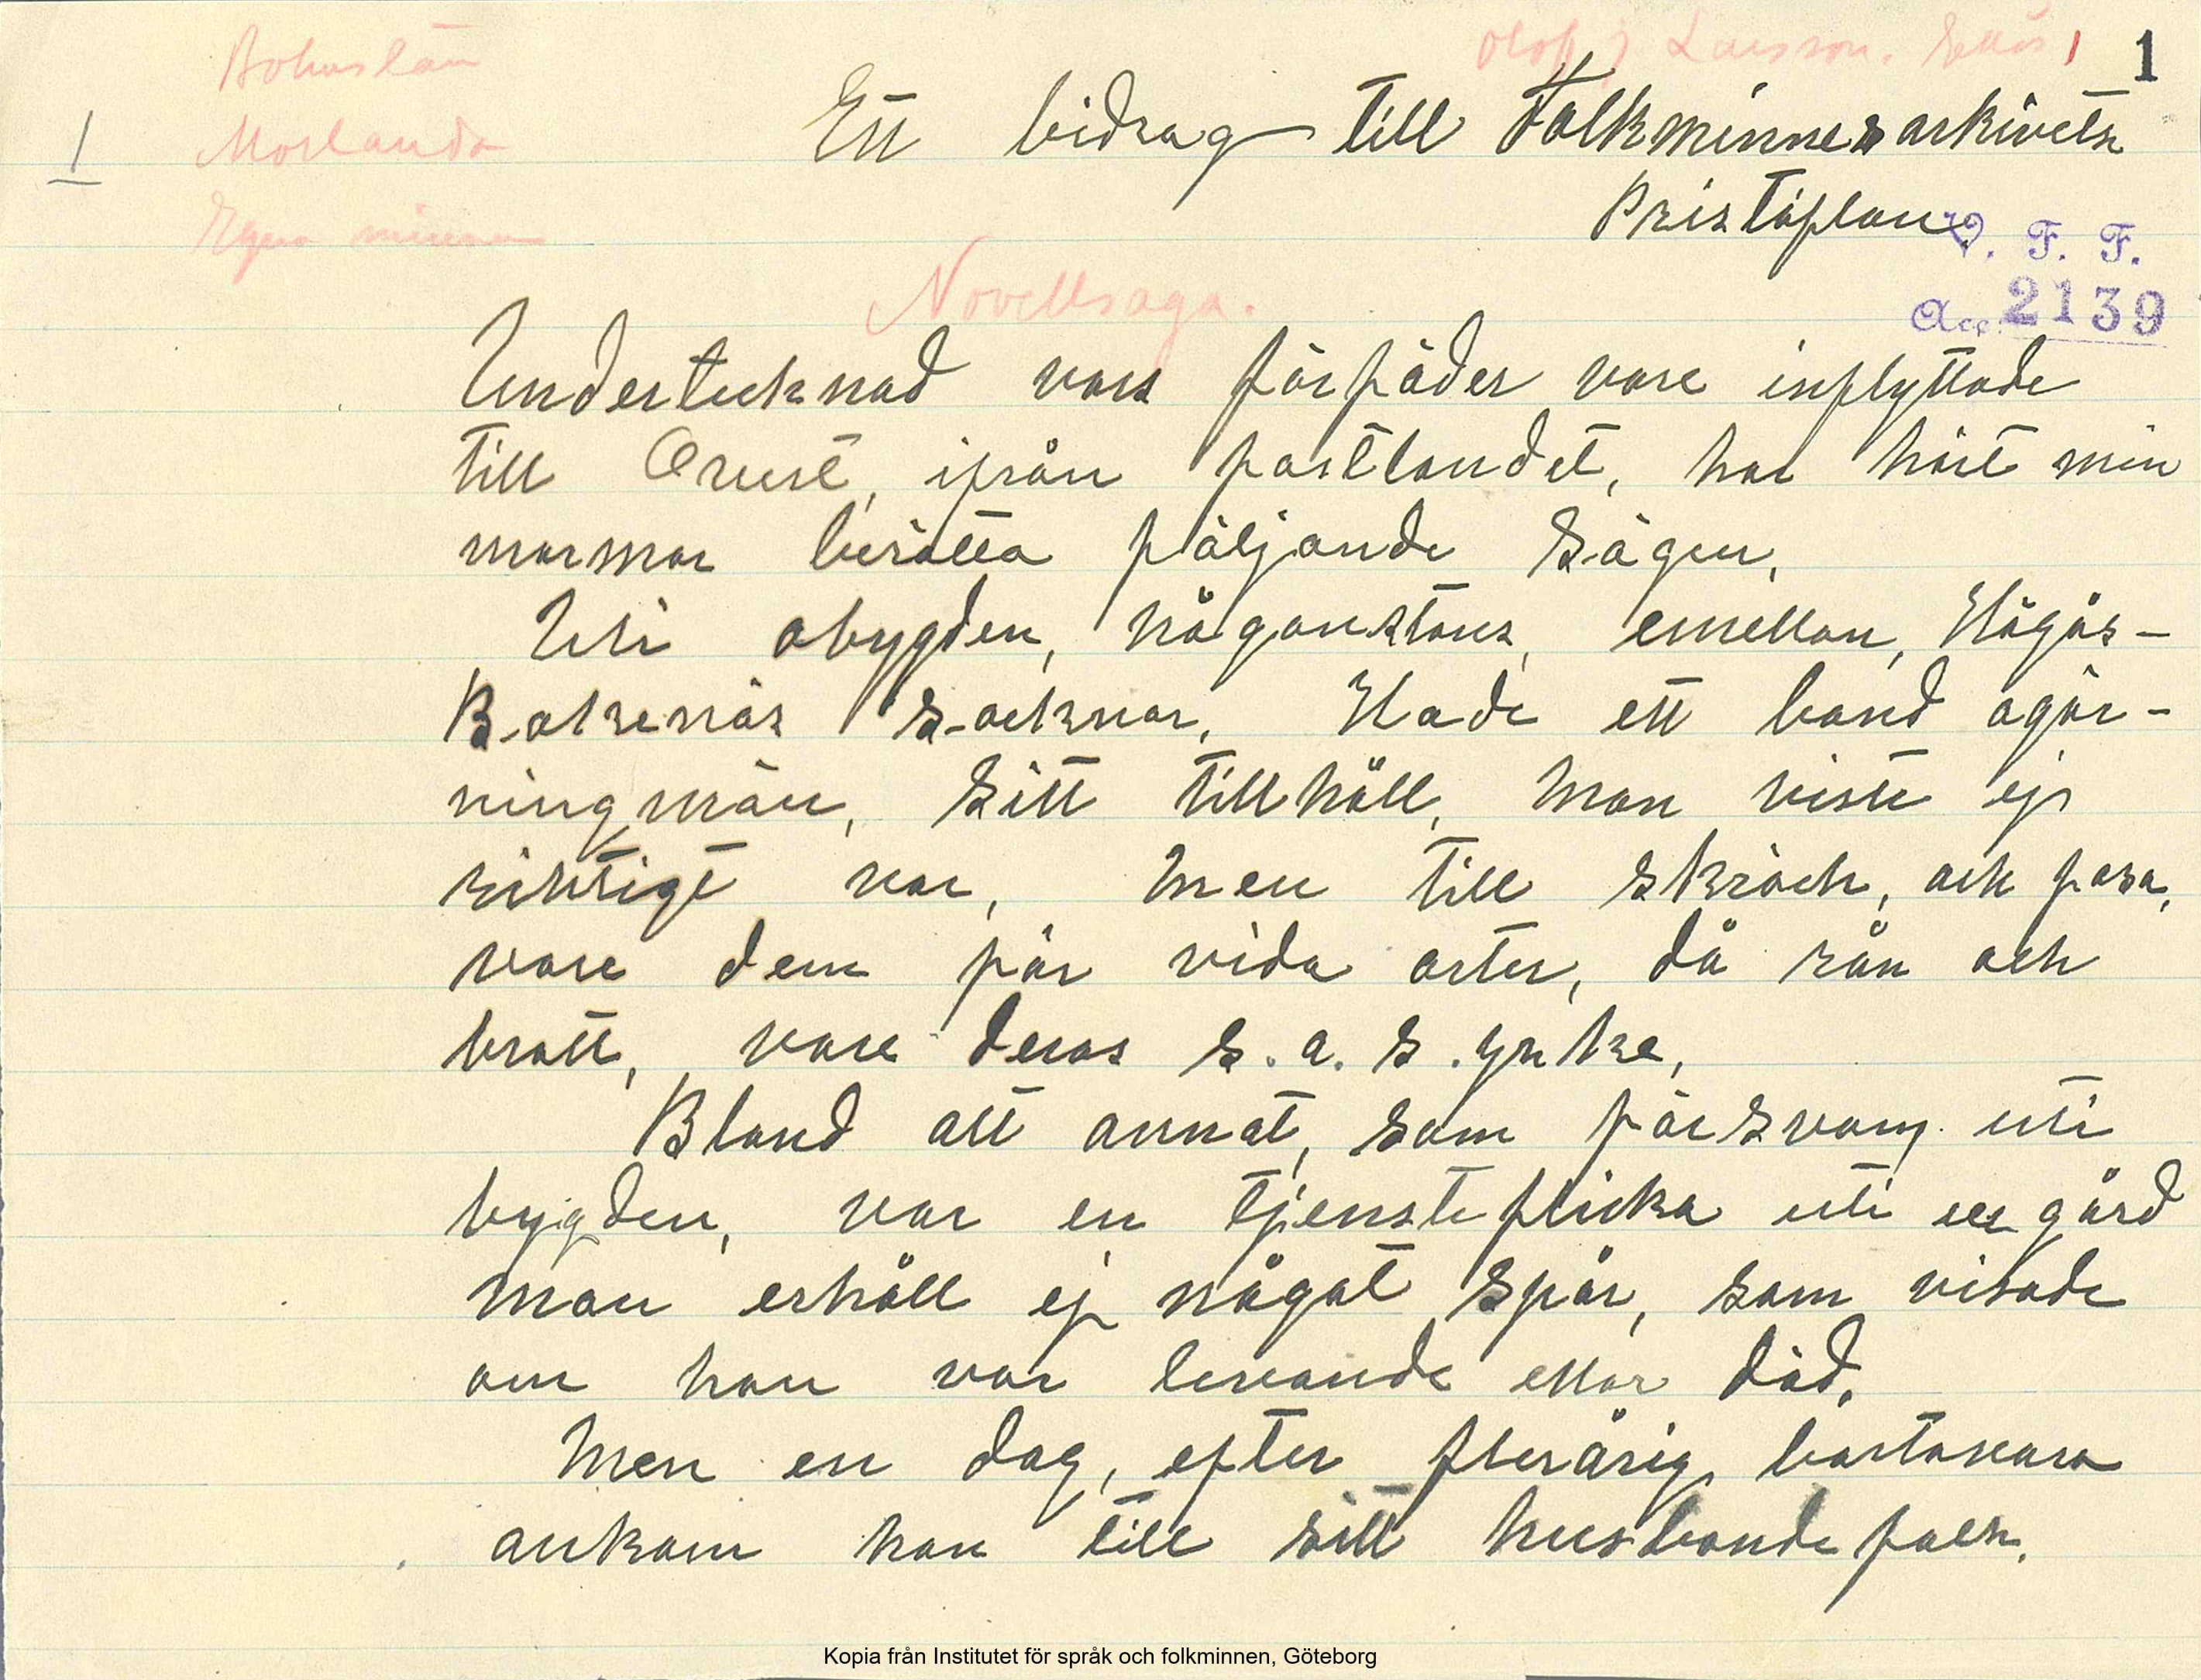 Bohuslän
Olof J Larsson.
1
1
Morlanda
Ett bidrag till Folkminnesarkivets
Egna minnen
Pristäflan
V. F. F.
Acc. 2139
Novellsaga.
Undertecknad vars förfäder vore inflyttade
till Orust, ifrån fastlandet, har hört min
mormor berätta följande Sägen,
Uti obygden, någonstans, emellan, Högås-
Bokenäs Socknar, Hade ett band ogär-
ningmän, Sitt tillhåll, man viste ej
riktigt var, men till skräck, och fasa,
vore dem för vida orter, då rån och
brott, vore deras s. a. s. yrke,
Bland att annat, som försvan uti
bygden, var en tjensteflicka uti en gård
man erhöll ej något spår, som visade
om hon var levande ellor död,
Men en dag, efter flerårig bortovaro
ankom hon till sitt husbondefolk.
Kopia från Institutet för språk och folkminnen, Göteborg